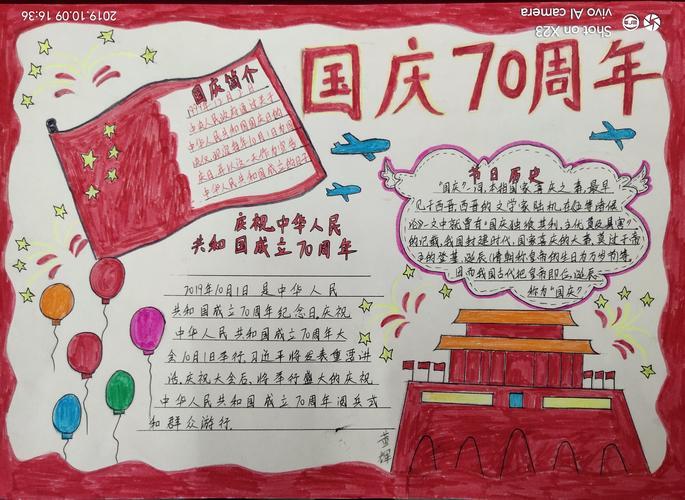 2019.10.09 16:36
Shot on X23
vivo AI camera
国庆70周年
国庆简介
1949年12月3日
中央人民政府通过关于
中华人民共和国国庆日的
决议,规定每年10月1日为国
庆日,并以这一天作为宣告
中华人民共和国成立的日子
节日历史
"国庆"一词,本指国家喜庆之事,最早
见于西晋,西晋的文学家陆机在《五等诸侯
论》一文中就曾有"国庆独飨其利,主忧莫与其害"
的记载,我国封建时代,国家喜庆的大事,莫过于帝
王的登基、诞辰(清朝称皇帝的生日为万岁
因而我国古代把皇帝即位、诞辰
称为"国庆"
庆祝中华人民
共和国成立70周年
2019年10月1日是中华人民
共和国成立70周年纪念日,庆祝
中华人民共和国成立70周年大
会10月1日举行,习近平将发表重要讲
话,庆祝大会后,将举行盛大的庆祝
中华人民共和国成立70周年阅兵式
和群众游行.